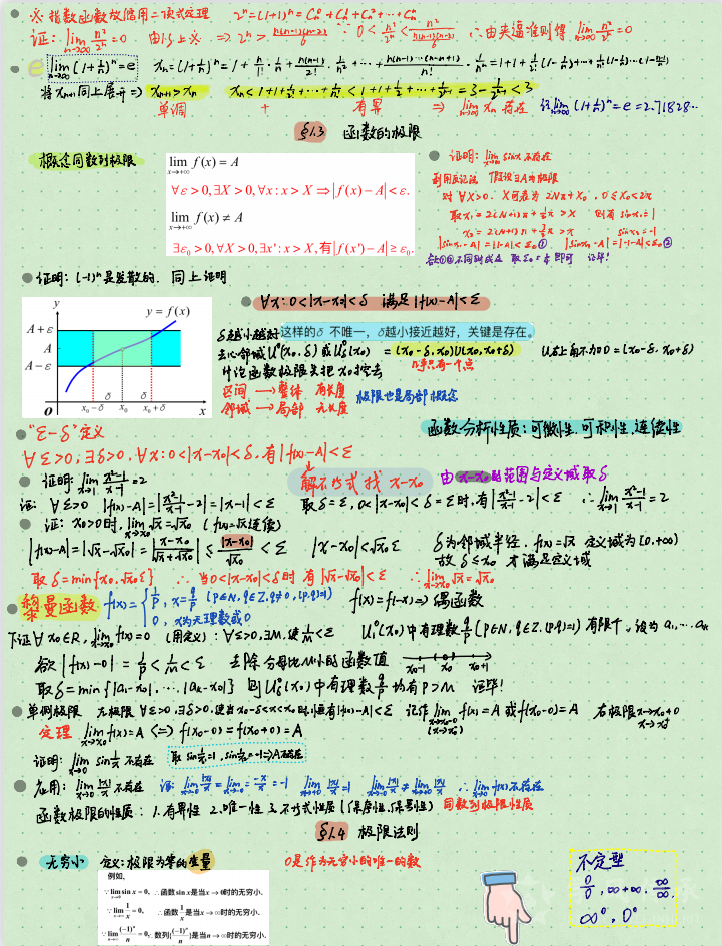 ※ 指数函数放缩用二项式定理 2ⁿ=(1+1)ⁿ=Cₙ⁰+Cₙ¹+Cₙ²+…+Cₙⁿ
证: lim_{n→∞} n²/2ⁿ=0 由以上※ ⇒ 2ⁿ > n(n-1)(n-2)/6 ∵ 0<n²/2ⁿ<n²/(n(n-1)(n-2)/6) ∴由夹逼准则得 lim_{n→∞} n²/2ⁿ=0
e lim_{n→∞}(1+1/n)ⁿ=e xₙ=(1+1/n)ⁿ=1+n/1!·1/n+n(n-1)/2!·1/n²+…+n(n-1)…(n-n+1)/n!·1/nⁿ=1+1+1/2!(1-1/n)+…+1/n!(1-1/n)…(1-(n-1)/n)
将xₙ₊₁同上展开⇒ xₙ₊₁>xₙ xₙ<1+1+1/2!+…+1/n!<1+1+1/2+…+1/2ⁿ⁻¹=3-1/2ⁿ⁻¹<3
单调 + 有界 ⇒ lim_{n→∞}xₙ存在 记lim_{n→∞}(1+1/n)ⁿ=e=2.71828…
§1.3 函数的极限
概念同数列极限
lim_{x→+∞} f(x)=A
∀ε>0,∃X>0,∀x:x>X⇒|f(x)-A|<ε.
lim_{x→+∞} f(x)≠A
∃ε₀>0,∀X>0,∃x':x'>X,有|f(x')-A|≥ε₀.
证明: lim_{x→+∞} sinx不存在
利用反证法 假设∃A为极限
对∀X>0. X可表为2Nπ+X₀, 0≤X₀<2π
取x₁=2(N+1)π+½π>X 则有 sinx₁=1
x₂=2(N+1)π+3/2π>X sinx₂=-1
|sinx₁-A|=|1-A|<ε₀① |sinx₂-A|=|-1-A|<ε₀②
①②不同时成立 即可 证毕!
证明: (-1)ⁿ是发散的. 同上证明
y
y=f(x)
A+ε
A
A-ε
δ δ
o x₀-δ x₀ x₀+δ x
∀x:0<|x-x₀|<δ 满足|f(x)-A|<ε
δ越小越好 这样的δ 不唯一，δ越小接近越好，关键是存在。
去心邻域U°(x₀,δ)或U°δ(x₀) =(x₀-δ,x₀)∪(x₀,x₀+δ) U右上角不加0=(x₀-δ,x₀+δ)
讨论函数极限先把x₀挖去 几乎只有一个点
区间→整体 有长度
邻域→局部 无长度 极限也是局部概念
函数分析性质:可微性.可积性.连续性
“ε-δ”定义
∀ε>0,∃δ>0,∀x:0<|x-x₀|<δ.有|f(x)-A|<ε
解不等式找x-x₀ 由x-x₀的范围与定义域取δ
证明: lim_{x→1} (x²-1)/(x-1)=2
证: ∀ε>0 |f(x)-A|=|(x²-1)/(x-1)-2|=|x-1|<ε 取δ=ε,0<|x-x₀|<δ=ε时,有|(x²-1)/(x-1)-2|<ε ∴lim_{x→1} (x²-1)/(x-1)=2
证: x₀>0时, lim_{x→x₀}√x=√x₀ (f(x)=√x连续)
|f(x)-A|=|√x-√x₀|=|(x-x₀)/(√x+√x₀)|≤|x-x₀|/√x₀<ε |x-x₀|<√x₀ε δ为邻域半径. f(x)=√x 定义域为[0,+∞)
故δ≤x₀ 才满足定义域
取δ=min{x₀,√x₀ε} ∴当0<|x-x₀|<δ时有|√x-√x₀|<ε ∴lim_{x→x₀}√x=√x₀
黎曼函数 f(x)={1/p, x=q/p (p∈N,q∈Z,q≠0,(p,q)=1) f(x)=f(-x)⇒偶函数
0, x为无理数或0
下证∀x₀∈R, lim_{x→x₀}f(x)=0 (用定义): ∀ε>0,∃M,使1/M<ε U°₁(x₀)中有理数q/p(p∈N,q∈Z,(p,q)=1)有限个,设为a₁,…aₖ
欲|f(x)-0|=1/p<1/M<ε 去除分母比M小的函数值 x₀-1 x₀ x₀+1
取δ=min{|a₁-x₀|,…,|aₖ-x₀|} 则U°δ(x₀)中有理数q/p均有p>M 证毕!
单侧极限 左极限∀ε>0,∃δ>0,使当x₀-δ<x<x₀时,恒有|f(x)-A|<ε 记作lim_{x→x₀-0}f(x)=A或f(x₀-0)=A 右极限x→x₀+0
(x→x₀⁻) x→x₀⁺
定理 lim_{x→x₀}f(x)=A⇔f(x₀-0)=f(x₀+0)=A
证明: lim_{x→0} sin1/x不存在 取sin1/x₁=1,sin1/x₂=-1⇒A不存在
应用: lim_{x→0}|x|/x不存在 证: lim_{x→-0}|x|/x=lim_{x→-0}-x/x=-1 lim_{x→+0}|x|/x=1 lim_{x→-0}|x|/x≠lim_{x→+0}|x|/x ∴lim_{x→0}f(x)不存在
函数极限的性质: 1.有界性 2.唯一性 3.不等式性质(保序性,保号性) 同数列极限性质
§1.4 极限法则
无穷小 定义:极限为零的变量 0是作为无穷小的唯一的数
例如,
∵lim_{x→0}sinx=0, ∴函数sinx是当x→0时的无穷小.
∵lim_{x→∞}1/x=0, ∴函数1/x是当x→∞时的无穷小.
∵lim_{n→∞}(-1)ⁿ/n=0, ∴数列{(-1)ⁿ/n}是当n→∞时的无穷小.
不定型
0/0,∞+∞.∞/∞.
∞⁰,0⁰